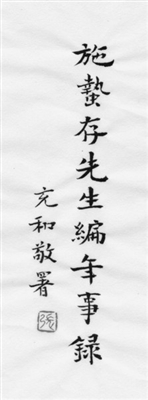 施蟄存先生編年事録
充和敬署
張